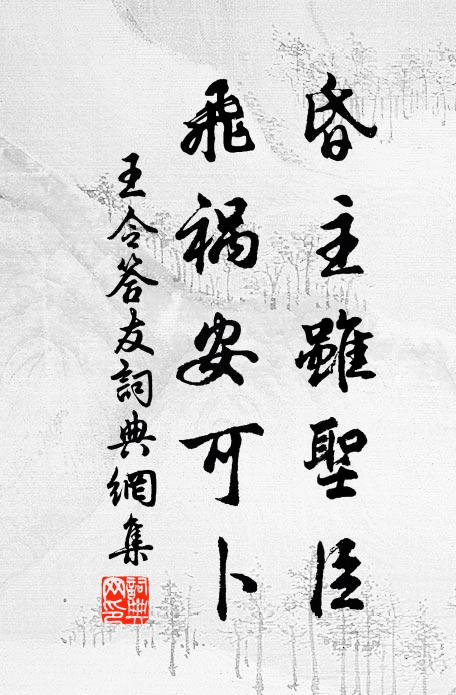 昏主雖聖臣
飛禍安可卜
王令答友詞典網集
詞典
网印